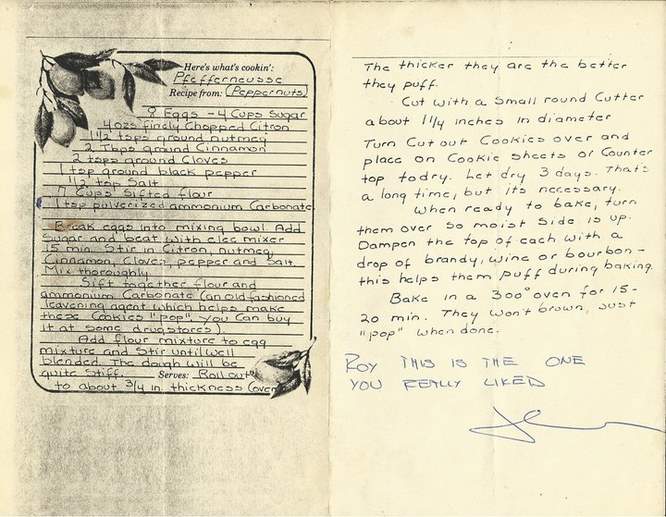 Here's what's cookin':
Pfefferneusse
Recipe from: (Peppernuts)
8 Eggs - 4 Cups Sugar
4 ozs finely Chopped Citron
1 1/2 tsps ground nutmeg
2 Tbps ground Cinnamon
2 tsps ground Cloves
1 tsp ground black pepper
1 1/2 tsp Salt
7 Cups Sifted flour
1 tsp pulverized ammonium Carbonate
Break eggs into mixing bowl. Add
Sugar and beat with elec mixer
15 min. Stir in Citron, nutmeg,
Cinnamon, Cloves, pepper and Salt.
Mix thoroughly.
Sift together flour and
ammonium Carbonate (an old fashioned
leavening agent which helps make
these Cookies "pop". You Can buy
it at some drugstores).
Add flour mixture to egg
mixture and Stir until well
blended. The dough will be
quite Stiff. Serves: Roll out
to about 3/4 in thickness (over
The thicker they are the better
they puff.
Cut with a Small round Cutter
about 1 1/4 inches in diameter
Turn Cut out Cookies over and
place on Cookie sheets or Counter
top to dry. Let dry 3 days. That's
a long time, but its necessary.
When ready to bake, turn
them over so moist side is up.
Dampen the top of each with a
drop of brandy, wine or bourbon -
this helps them puff during baking.
Bake in a 300° oven for 15-
20 min. They won't brown, just
"pop" when done.
ROY THIS IS THE ONE
YOU REALLY LIKED